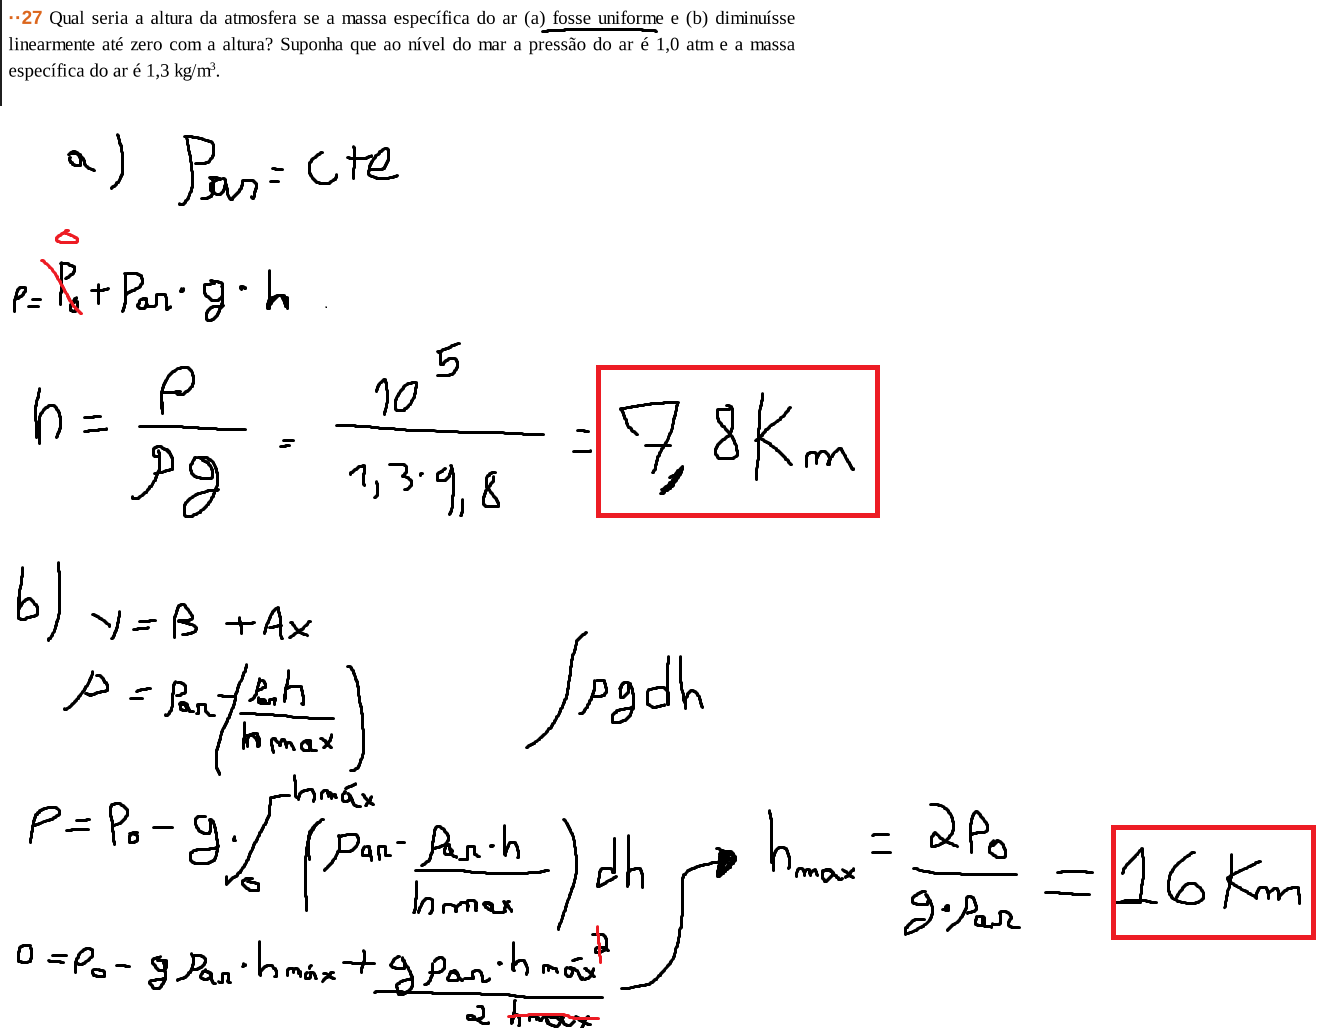 ··27 Qual seria a altura da atmosfera se a massa específica do ar (a) fosse uniforme e (b) diminuísse
linearmente até zero com a altura? Suponha que ao nível do mar a pressão do ar é 1,0 atm e a massa
específica do ar é 1,3 kg/m³.
a) ρar = cte
0
P = P₀ + ρar · g · h
h = P / ρg = 10⁵ / 1,3 · 9,8 = 7,8 Km
b) y = B + Ax
ρ = ρar - (ρar h / hmax)
∫ρgdh
P = P₀ - g · ∫₀^hmáx (ρar - ρar · h / hmax) dh
hmax = 2P₀ / g · ρar = 16 Km
0 = P₀ - g ρar · hmáx + g ρar · hmáx² / 2 hmax